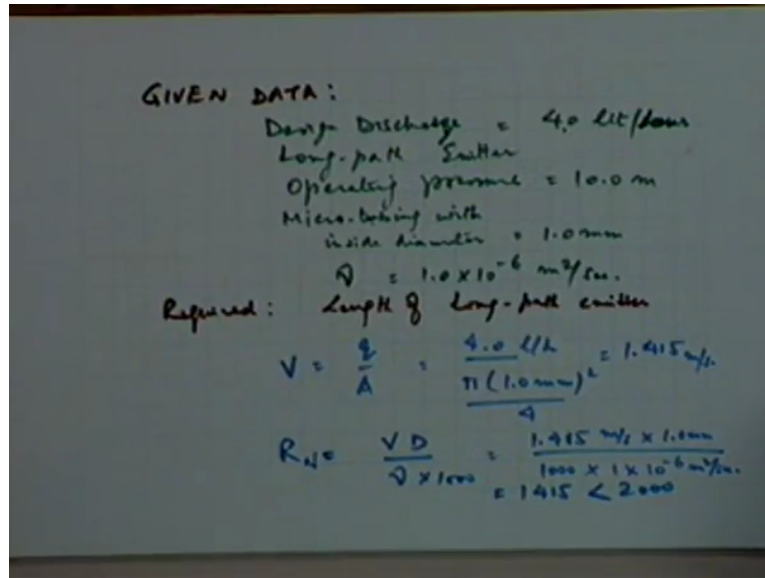 GIVEN DATA:
Design Discharge = 4.0 lit/hour
Long-path Emitter
Operating pressure = 10.0 m
Micro-tubing with
inside diameter = 1.0 mm
ν = 1.0 x 10⁻⁶ m²/sec.
Required: Length of Long-path emitter
V = q/A = 4.0 l/h / (π(1.0mm)²/4) = 1.415 m/s.
R_N = VD / (ν x 1000) = 1.415 m/s x 1.0mm / (1000 x 1 x 10⁻⁶ m²/sec.)
= 1415 < 2000